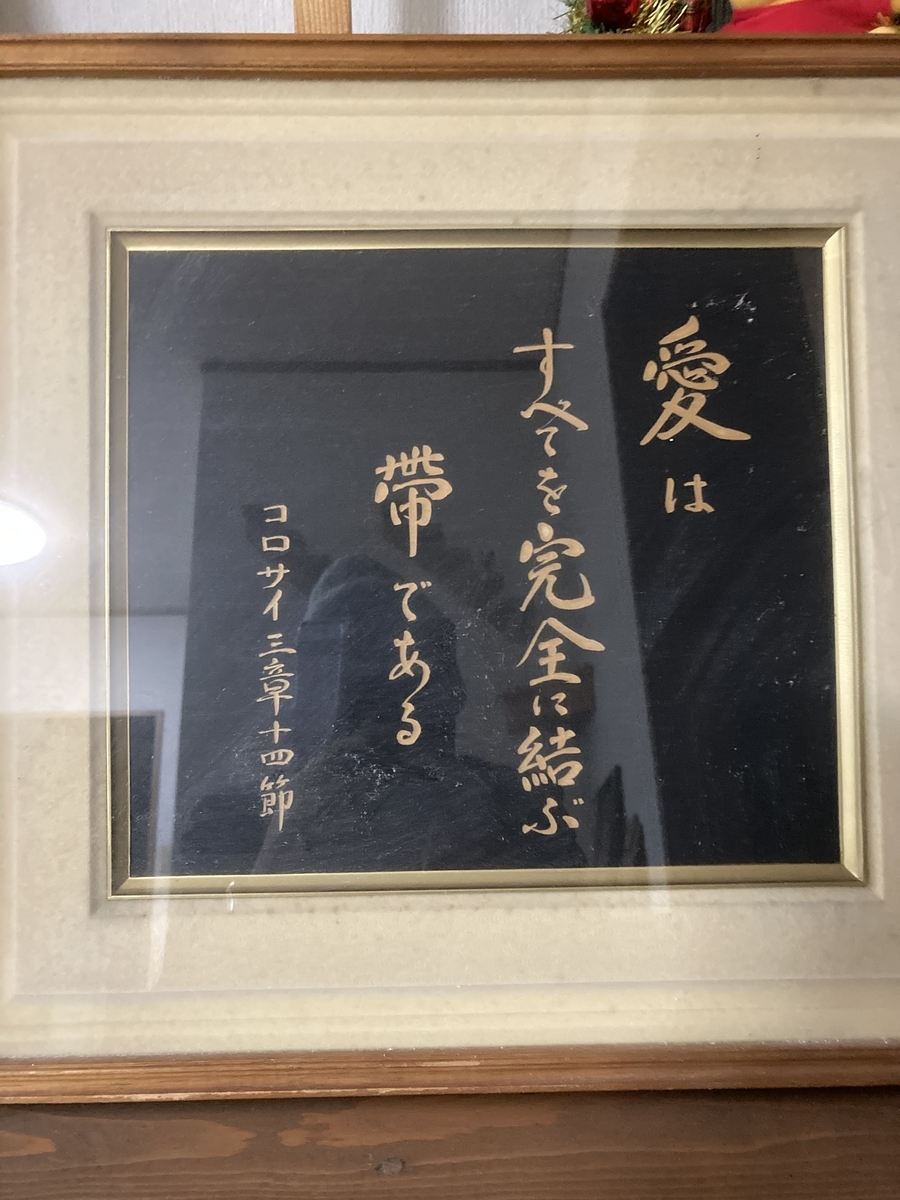 愛は
すべてを完全に結ぶ
帶である
コロサイ三章十四節